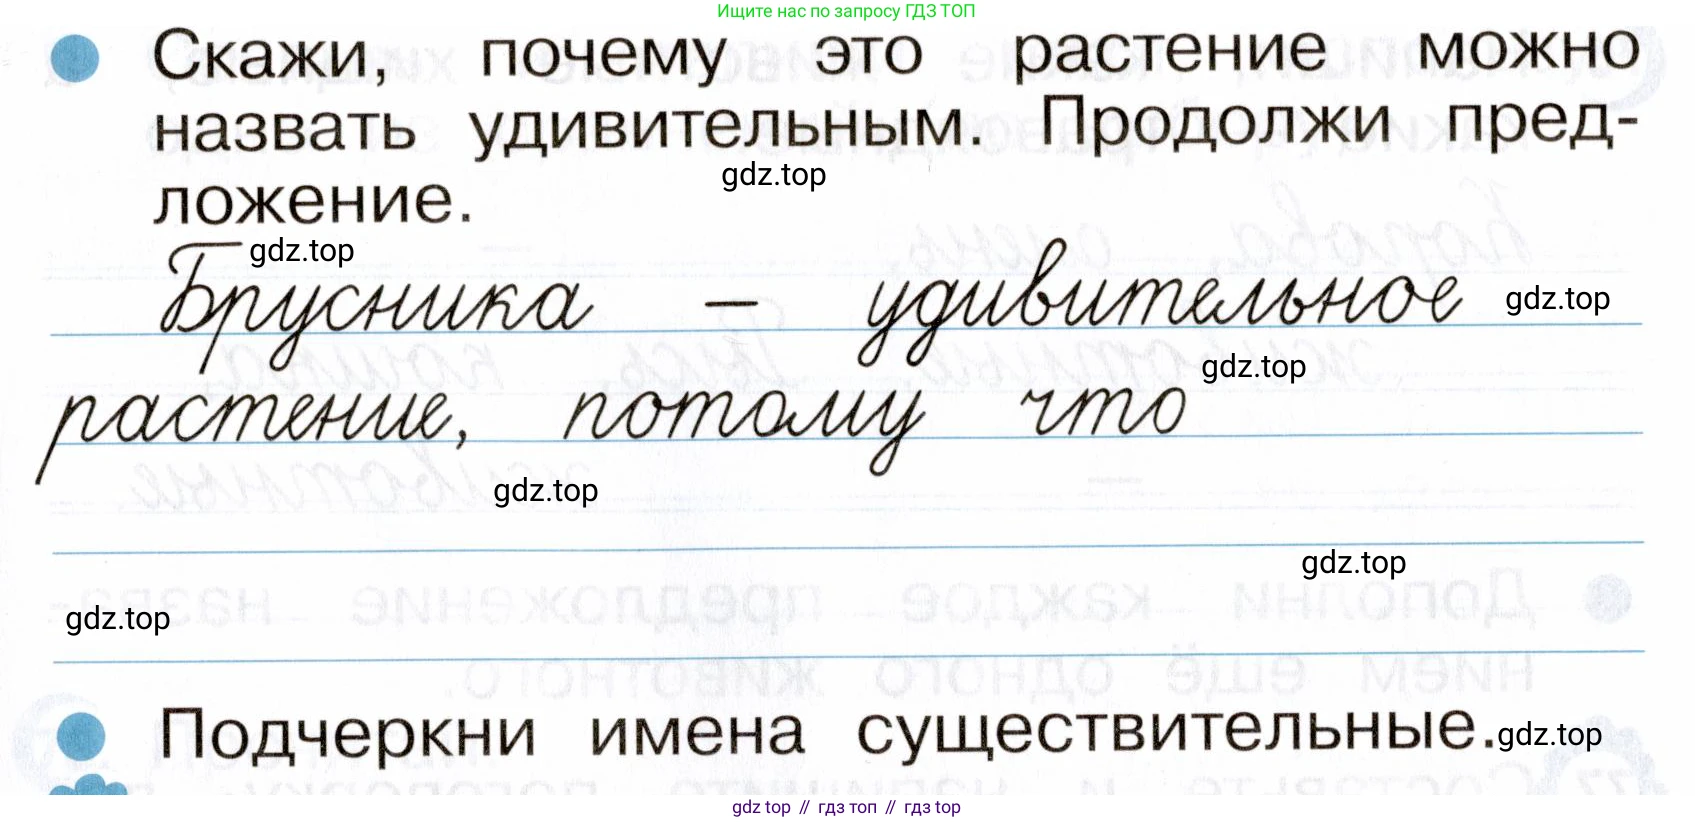 Ищите нас по запросу ГДЗ ТОП
Скажи, почему это растение можно
назвать удивительным. Продолжи пред-
gdz.top
ложение.
gdz.top
Брусника – удивительное
gdz.top
gdz.top
растение, потому что
gdz.top
gdz.top
gdz.top
Подчеркни имена существительные.
gdz.top
gdz top // гдз топ // гдз top